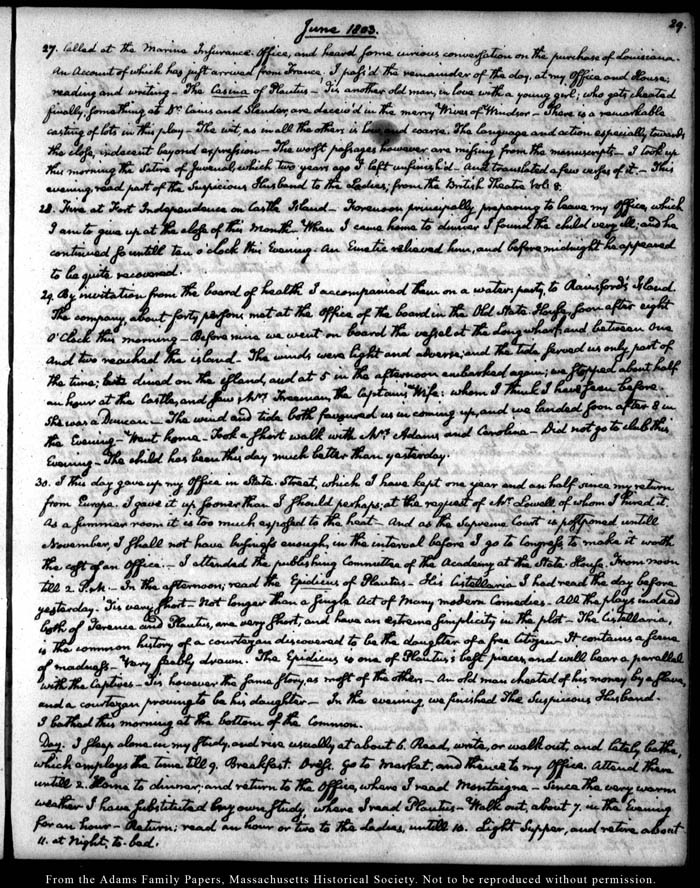 29.
June 1803.
27. Called at the Marine Insurance Office, and heard some curious conversation on the purchase of Louisiana.
An Account of which has just arrived from France. I pass'd the remainder of the day, at my Office and House;
reading and writing — The Casina of Plautus — Tis another old man, in love with a young girl; who gets cheated
finally, something as Dr. Caius and Slender, are deceiv'd in the merry Wives of Windsor — There is a remarkable
casting of lots in this play — The wit, as in all the others is low, and coarse. The language and action especially towards
the close, indecent beyond expression — The worst passages however are missing from the manuscripts — I took up
this morning the Satire of Juvenal, which two years ago I left unfinish'd — And translated a few verses of it. — This
evening, read part of the Suspicious Husband to the Ladies; from the British Theatre Vol: 8.
28. Fire at Fort Independence on Castle Island — Forenoon principally preparing to leave my Office, which
I am to give up at the close of this Month — When I came home to dinner I found the child very ill; and he
continued so untill ten o'clock this Evening. An Emetic relieved him, and before midnight he appeared
to be quite recovered.
29. By invitation from the board of health I accompanied them on a water-party, to Rainsford's Island.
The company about forty persons met at the Office of the board in the Old State-House, soon after eight
o'clock this morning — Before nine we went on board the vessel at the Long wharf, and between one
and two reached the island. The winds were light and adverse; and the tide served us only part of
the time; we dined on the Island, and at 5 in the afternoon embarked again; we stopped about half
an hour at the Castle, and saw Mrs. Freeman, the Captain's Wife: whom I think I have seen before.
She was a Duncan — The wind and tide both favoured us in coming up, and we landed soon after 8 in
the Evening — Went home — Took a short walk with Mrs. Adams and Caroline — Did not go to club this
Evening — The child has been this day much better than yesterday.
30. I this day gave up my Office in State-Street, which I have kept one year and an half since my return
from Europe. I gave it up sooner than I should perhaps; at the request of Mr. Lowell of whom I hired it.
As a summer room it is too much exposed to the heat — And as the Supreme Court is postponed untill
November, I shall not have business enough, in the interval before I go to Congress, to make it worth
the cost of an Office. — I attended the publishing Committee of the Academy at the State-House. From noon
till 2 P.M. — In the afternoon, read the Epidicus of Plautus — His Cistellaria I had read the day before
yesterday. Tis very short — Not longer than a single Act of many modern Comedies. All the plays indeed
both of Terence and Plautus, are very short, and have an extreme simplicity in the plot — The Cistellaria,
is the common history of a courtezan discovered to be the daughter of a free citizen — It contains a scene
of madness. Very feebly drawn. The Epidicus is one of Plautus's best pieces, and will bear a parallel
with the Captives — Tis however the same story, as most of the others — An old man cheated of his money by a slave,
and a courtezan proving to be his daughter — In the evening we finished The Suspicious Husband —
I bathed this morning at the bottom of the Common.
Day. I sleep alone in my study, and rise usually at about 6. Read, write, or walk out, and lately bathe,
which employs the time till 9. Breakfast. Dress. Go to Market, and thence to my Office. Attend there
untill 2. Home to dinner; and return to the Office, where I read Montaigne — Since the very warm
weather I have substituted my own Study, where I read Plautus — Walk out, about 7. in the Evening
for an hour — Return; read an hour or two to the Ladies, untill 10. Light Supper, and retire about
11. at Night, to bed.
From the Adams Family Papers, Massachusetts Historical Society. Not to be reproduced without permission.